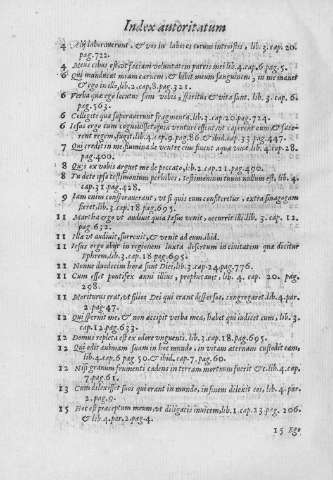 Index autoritatum
4 Alij laborauerunt, & vos in labores eorum introistis, lib. 3. cap. 20.
pag. 722.
4 Meus cibus est vt faciam voluntatem patris mei lib. 4. cap. 6. pag. 5.
6 Qui manducat meam carnem, & bibit meum sanguinem, in me manet
& ego in illo, lib. 2. cap. 8. pag. 321.
6 Verba quæ ego locutus sum vobis, spiritus & vita sunt. lib. 3. cap. 6.
pag. 563.
6 Colligite quæ superauerunt fragmenta. lib. 3. cap. 20. pag. 724.
6 Iesus ergo cum cognouisset quia venturi essent vt raperent eum & face-
rent regem, fugit, lib. 4. cap. 9. pag. 86 & ibid. cap. 33 pag. 447.
7 Qui credit in me flumina de ventre eius fluent aquæ viuæ lib. 4. cap. 28.
pag. 400.
8 Quis ex vobis arguet me de peccato, lib. 2. cap. 21. pag. 490.
8 Tu de te ipso testimonium perhibes, testimonium tuum nullum est, lib. 4.
cap. 31 pag. 428.
9 Iam enim conspirauerant, vt si quis eum confiteretur, extra sinagogam
fieret, lib. 3. cap. 18 pag. 695.
11 Martha ergo vt audiuit quia Iesus venit, occurrit illi. lib. 3. cap. 12.
pag. 632.
11 Illa vt audiuit, surrexit, & venit ad eum. ibid.
11 Iesus ergo abijt in regionem iuxta desertum in ciuitatem quæ dicitur
Ephrem, lib. 3. cap. 18 pag. 695.
11 Nonne duodecim horæ sunt Diei, lib. 3. cap. 24. pag. 776.
11 Cum esset pontifex anni illius, prophetauit, lib. 4. cap. 20. pag.
298.
11 Moriturus erat, vt filios Dei qui erant dispersos, congregaret lib. 4. par.
2. pag. 47.
12 Qui spernit me, & non accipit verba mea, habet qui iudicet eum, lib. 3.
cap. 12 pag. 633.
12 Domus repleta est ex odore vnguenti. lib. 3. cap. 18. pag. 695.
12 Qui odit animam suam in hoc mundo, in vitam æternam custodit eam,
lib. 4. cap. 6 pag. 50. & ibid. cap. 7. pag. 60.
12 Nisi granum frumenti cadens in terram mortuum fuerit &c. lib. 4. cap.
7. pag. 61.
13 Cum dilexisset suos qui erant in mundo, in finem dilexit eos, lib. 4. par.
2. pag. 9.
15 Hoc est præceptum meum, vt diligatis inuicem, lib. 1. cap. 23. pag. 206.
& lib. 4. par. 2. pag. 4.
15 Ego